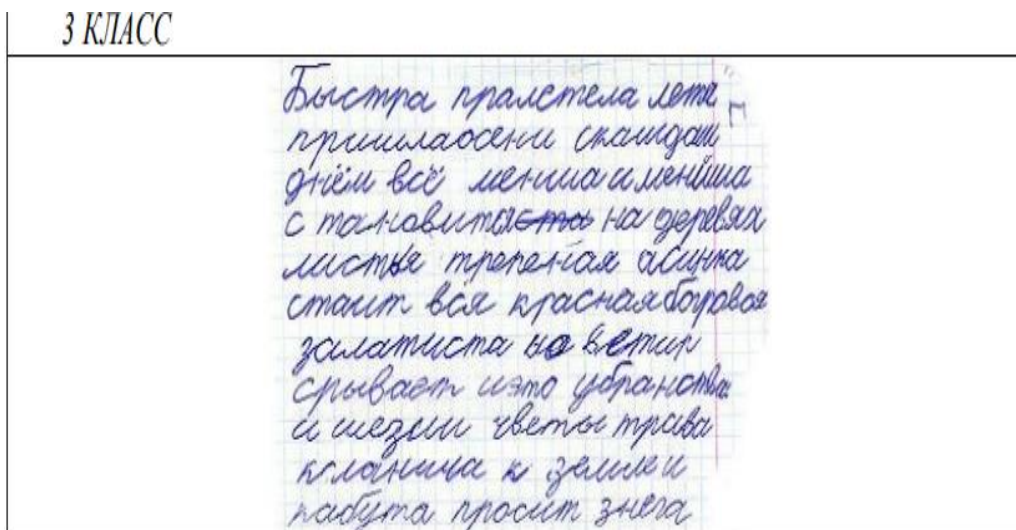 3 КЛАСС
Быстра пралетела лета
пришлаосени скаждам
днём всё меньша и меньша
с тановитя на деревях
листья трепеная асинка
стаит вся краснаябогровоя
залатиста но ветир
срывает иэто убранства
и изезли цветы трава
кланица к земле и
кабута просит знега